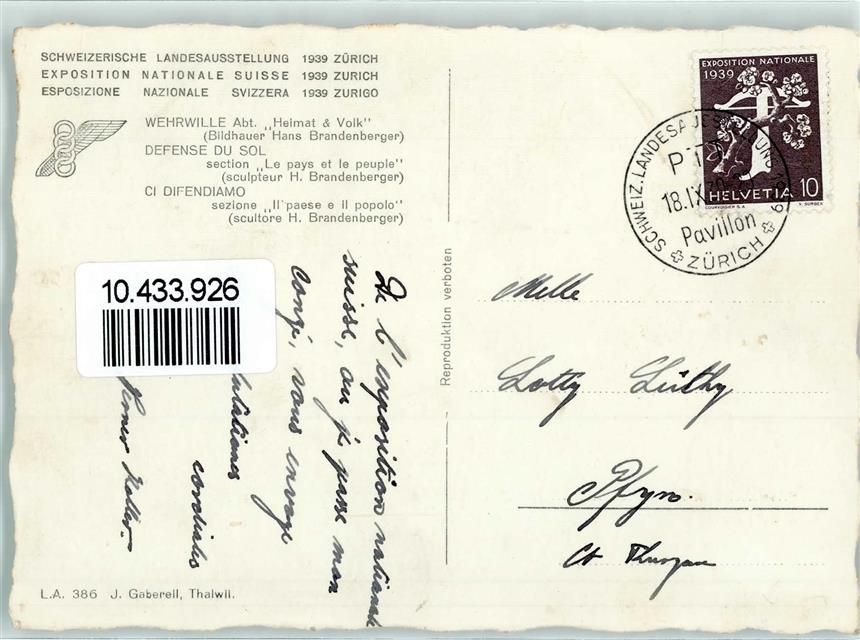 SCHWEIZERISCHE LANDESAUSSTELLUNG 1939 ZÜRICH
EXPOSITION NATIONALE SUISSE 1939 ZURICH
ESPOSIZIONE NAZIONALE SVIZZERA 1939 ZURIGO
WEHRWILLE Abt. „Heimat & Volk"
(Bildhauer Hans Brandenberger)
DEFENSE DU SOL
section „Le pays et le peuple"
(sculpteur H. Brandenberger)
CI DIFENDIAMO
sezione „Il paese e il popolo"
(scultore H. Brandenberger)
10.433.926
De l'exposition nationale
suisse, ou je passe mon
congé, vous envoye
cordiales
L.A. 386 J. Gaberell, Thalwil.
Reproduktion verboten
EXPOSITION NATIONALE
1939
HELVETIA 10
COURVOISIER S.A.
SCHWEIZ. LANDESAUSSTELLUNG 1939
PTT
18.IX
Pavillon
ZÜRICH
Melle
Lotty Lüthy
Pfyn.
Ct Thurgau